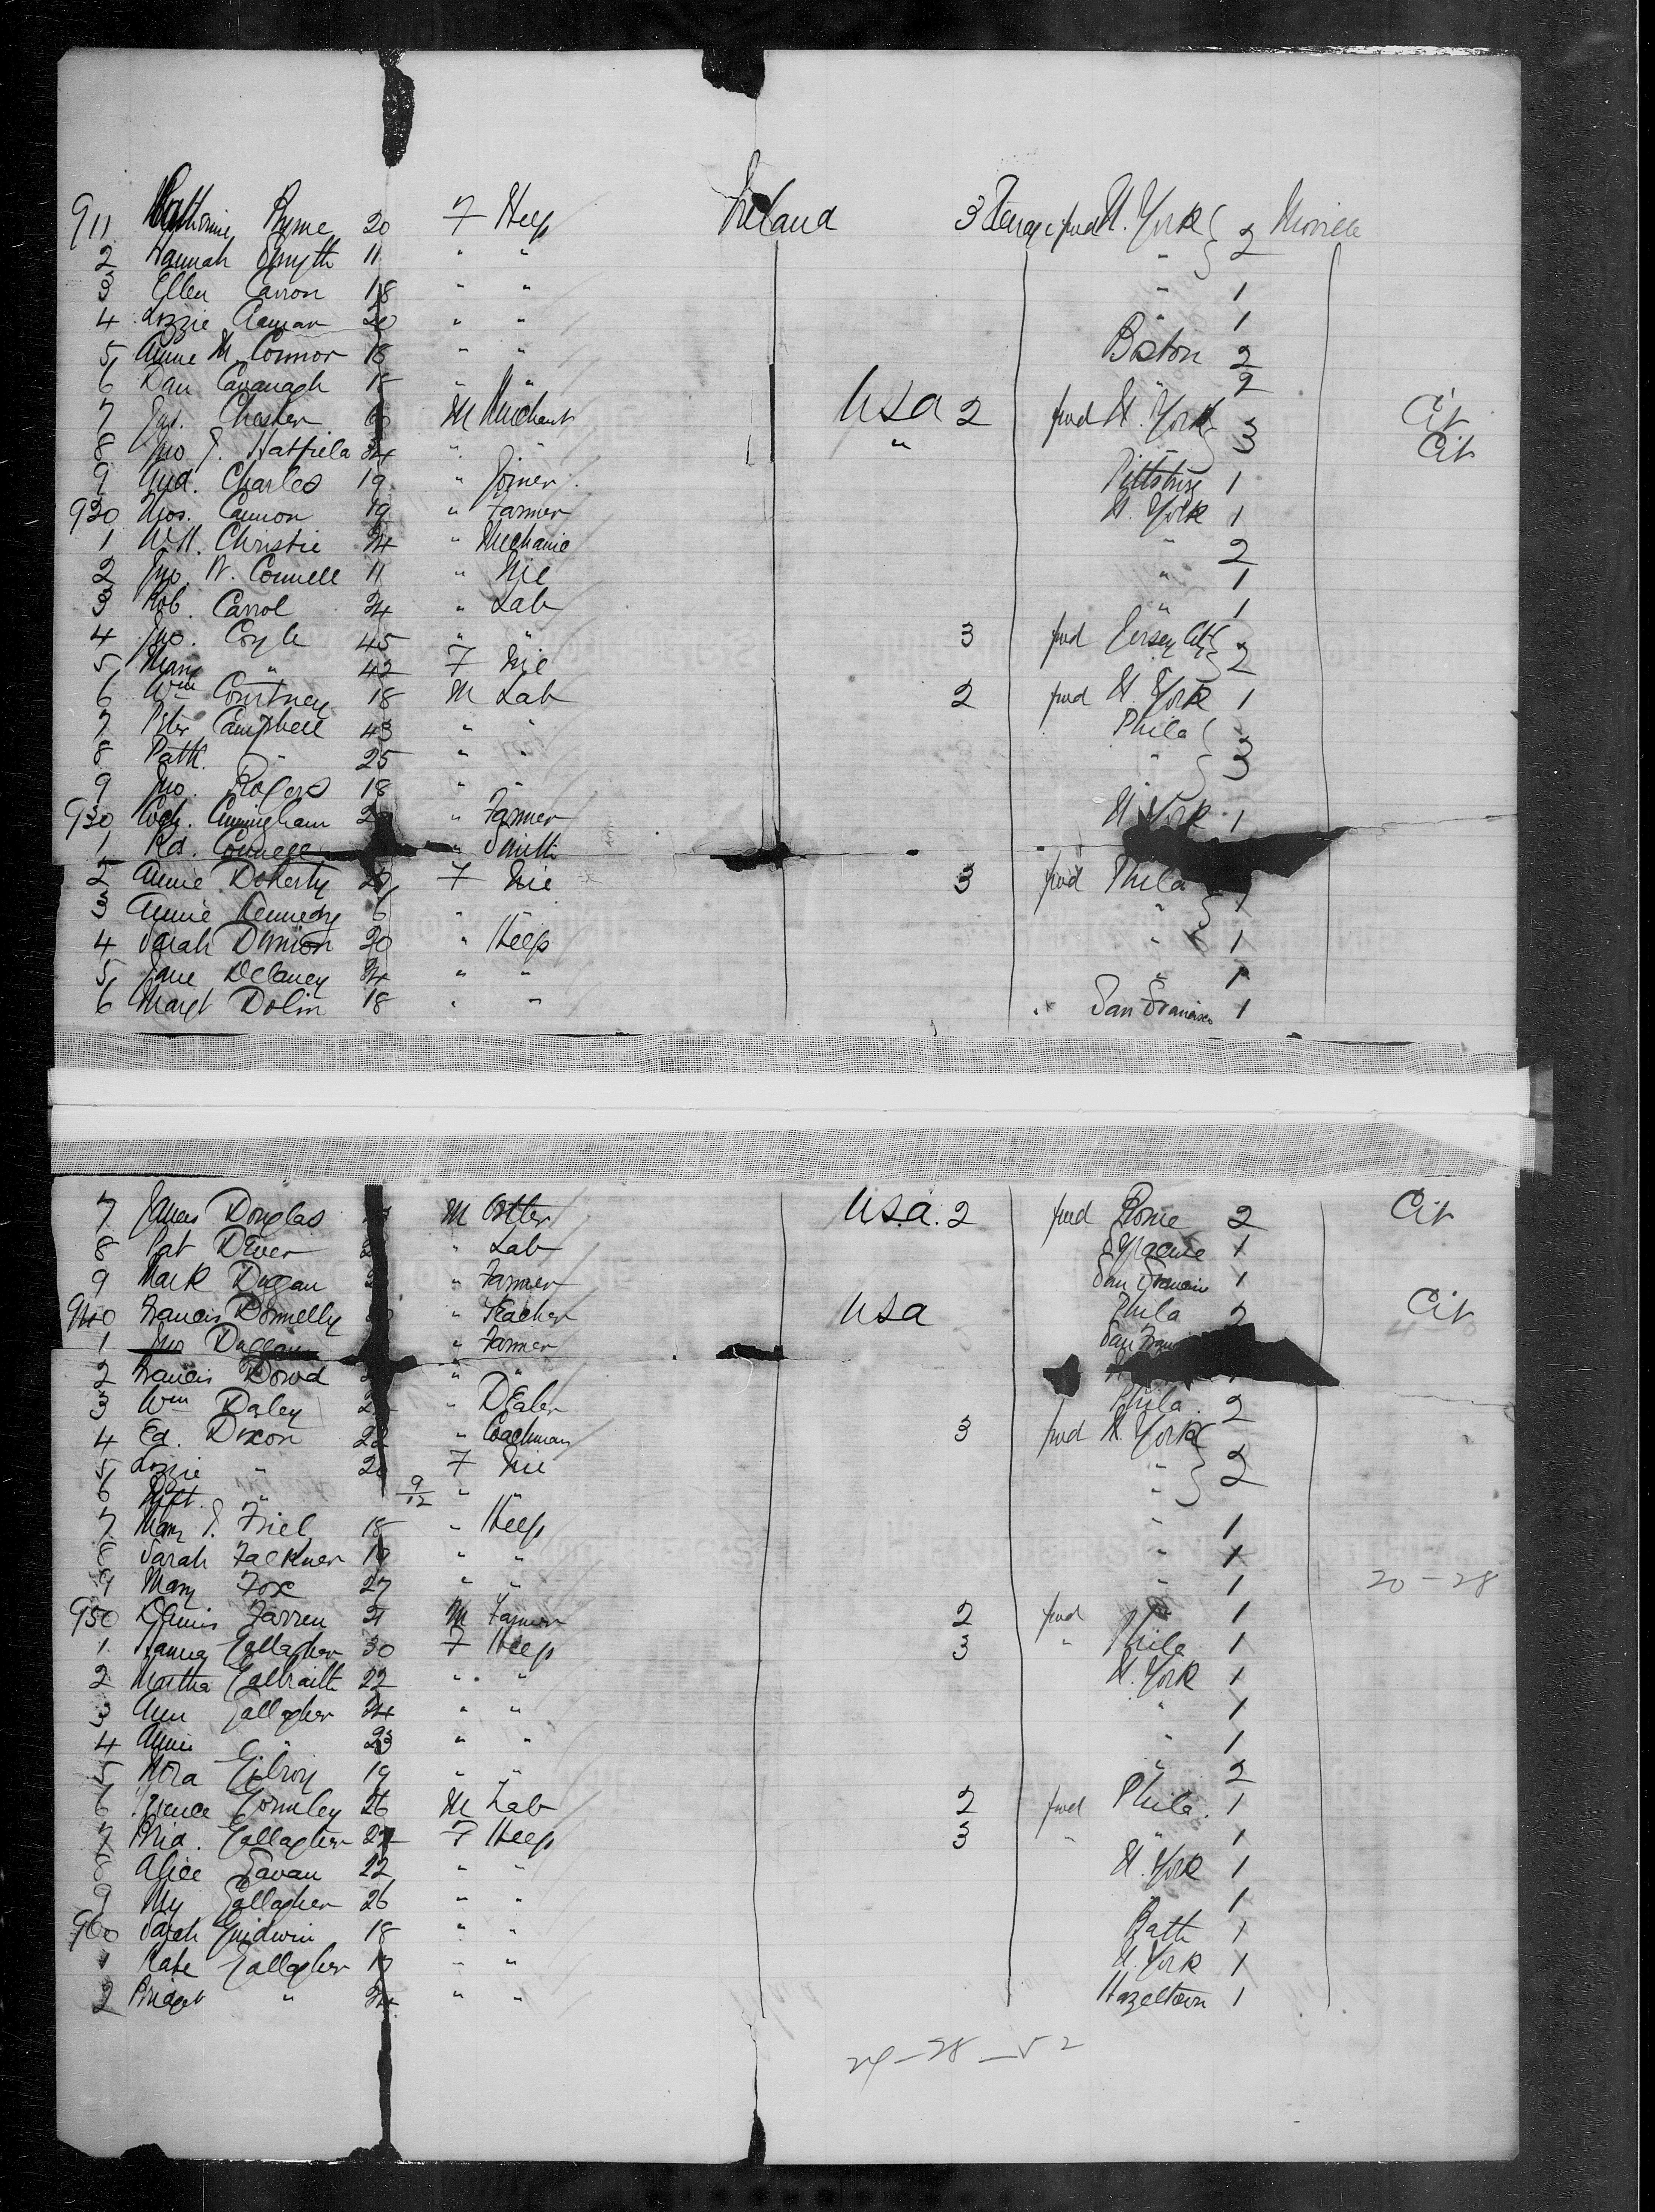 911 Catherine Byrne 20 F Help Ireland 3 Steerage fwd N. York 2 Moville
2 Hannah Smyth 11 " " " 2
3 Ellen Carron 18 " " " 1
4 Lizzie 20 " " " 1
5 Annie M. Connor 18 " " Boston 2
6 Dan Cavanagh 18 " " " 2
7 Jas. Chester M Merchant USA 2 fwd N. York 3 Cit
8 Jno J. Hatfield 34 " " " " 3 Cit
9 And. Charles 19 " Joiner Pittsburg 1
920 Thos. Cannon 19 " Farmer N. York 1
1 Wm. Christie 24 " Mechanic " 2
2 Jno. W. Connell 11 " Nil " 1
3 Rob. Carrol 24 " Lab " 1
4 Jno. Coyle 45 " " 3 fwd Jersey City 2
5 Mary " 42 F Nil " 2
6 Wm Courtney 18 M Lab 2 fwd N. York 1
7 Peter Campbell 43 " " Phila
8 Patk. " 25 " " " 3
9 Jno. Rogers 18 " " " 3
930 Cunningham " Farmer N. York 1
1 Rd. " Smith
2 Annie Doherty F Nil 3 fwd Phila
3 Annie Kennedy 6 " " " 1
4 Sarah 20 " Help " 1
5 Jane Delaney 24 " " " 1
6 Margt Dolin 18 " " San Francisco 1
7 James Douglas M Ostler U.S.A. 2 fwd Rome 2 Cit
8 Pat Diver " Lab Syracuse 1
9 Mark Duggan " Farmer San Francisco 1
940 Francis Donnelly " Teacher USA Phila 2 Cit
1 Jno Duggan " Farmer San
2 Francis Dowd " "
3 Wm Daley " Dealer Phila. 2
4 Ed. Dixon 22 " Coachman 3 fwd N. York
5 Lizzie " 20 F Nil " 2
6 Inft. " 9/12 " " "
7 Mary J. Friel 18 " Help " 1
8 Sarah Falkner 19 " " " 1
9 Mary Fox 27 " " " 1 20-28
950 Dennis Farren 21 M Farmer 2 fwd " 1
1 Gallagher 30 F Help 3 " Phila 1
2 Martha Galbraith 22 " " N. York 1
3 Ann Gallagher 24 " " " 1
4 Annie " 23 " " " 1
5 Nora Gilroy 19 " " " 2
6 Gormley 26 M Lab 2 fwd Phila. 1
7 Brid. Gallagher F Help 3 " " 1
8 Alice Gavan 22 " " N. York 1
9 My Gallagher 26 " " " 1
960 Sarah 18 " " Bath 1
1 Kate Gallagher 17 " " N. York 1
2 Bridget " 24 " " Hazeltown 1
24-28-52